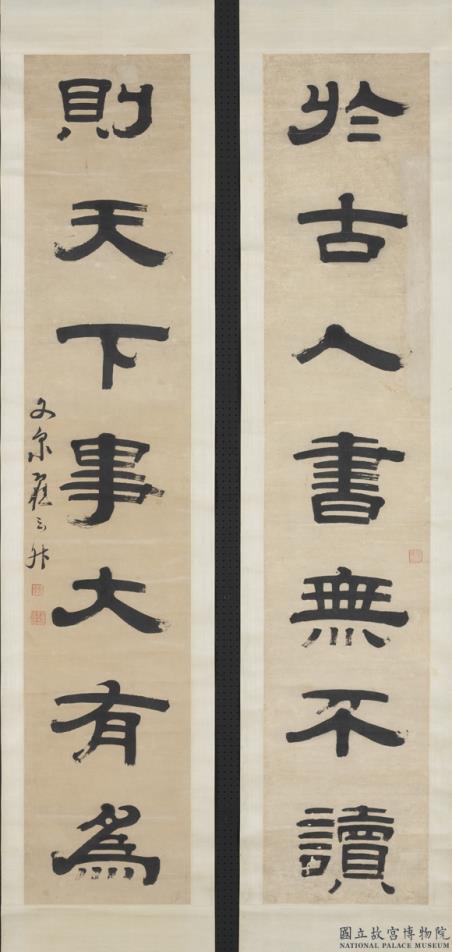 於古人書無不讀
則天下事大有為
國立故宮博物院
NATIONAL PALACE MUSEUM